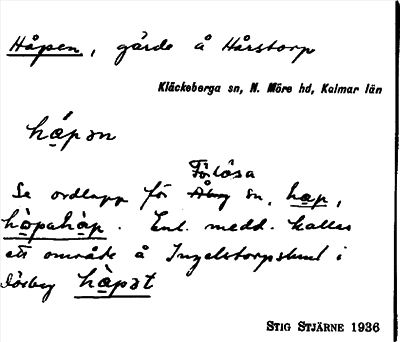 Håpen, gärde å Hårstorp
Kläckeberga sn, N. Möre hd, Kalmar län
hå̀pən
Förlösa
Se ordlapp för Åby sn, hap,
hå̀pahå̀p. Enl. medd. kallas
ett område å Ingelstorpslund i
Dörby hå̀pət
STIG STJÄRNE 1936